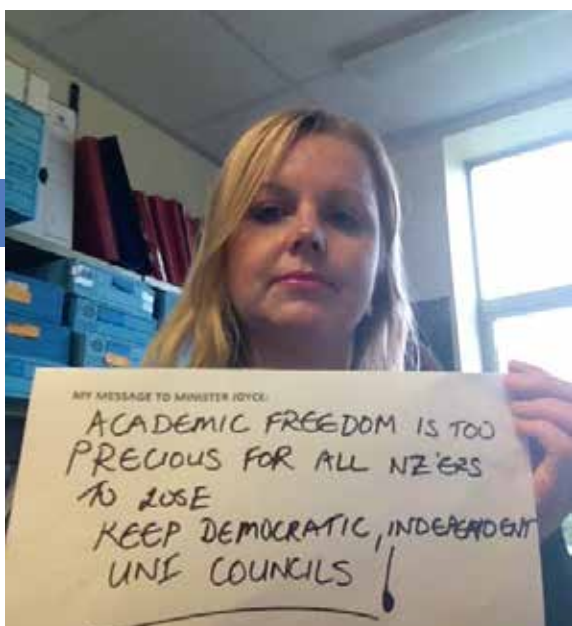 MY MESSAGE TO MINISTER JOYCE:
ACADEMIC FREEDOM IS TOO
PRECIOUS FOR ALL NZ'ERS
TO LOSE
KEEP DEMOCRATIC, INDEPENDENT
UNI COUNCILS!